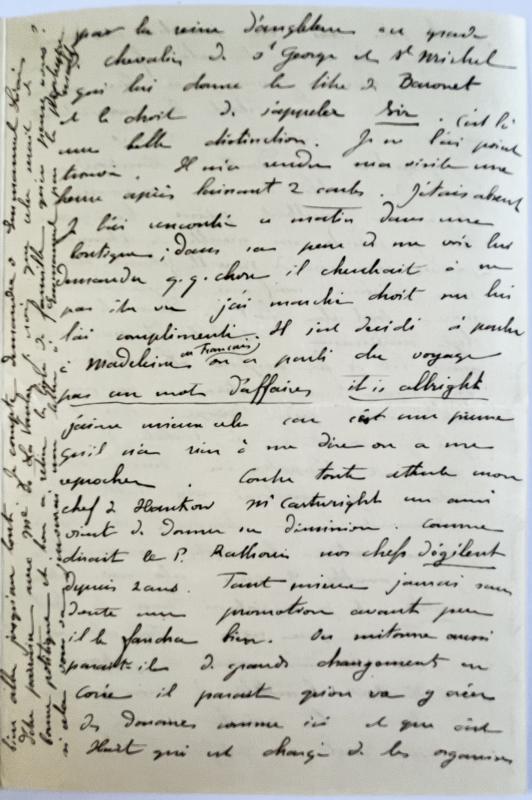 par la reine d'angleterre au grade
chevalier de St George et St Michel
qui lui donne le titre de Baronet
et le droit de s'appeler Sir. C'est là
une belle distinction. Je ne l'ai point
trouvé. Il m'a rendu ma visite une
heure après laissant 2 cartes. J'étais absent
Je l'ai rencontré ce matin dans une
boutique; dans sa peur de me voir lui
demander q.q. chose il cherchait à ne
pas être vu j'ai marché droit sur lui
l'ai complimenté. Il s'est décidé à parler
à Madeleine (en Français) on a parlé du voyage
pas un mot d'affaires it is allright
j'aime mieux cela car c'est une preuve
qu'il n'a rien à me dire ou a me
reprocher. Contre toute attente mon
chef d'Hankow Mr Cartwright un ami
vient de donner sa démission. Comme
dirait le P. Rathouis nos chefs dégèlent
depuis 2 ans. Tant mieux jamais sans
doute une promotion avant peu
il le faudra bien. On mitonne aussi
parait-il de grands changement en
Corée il parait qu'on va y créer
des Douanes comme ici et que c'est
Hart qui est chargé de les organiser
bien allé jusqu'au bout. Je compte demander à Emmanuel
d'être parrain avec Mme de La
bonne politique et bon à retenir
si cela vous va